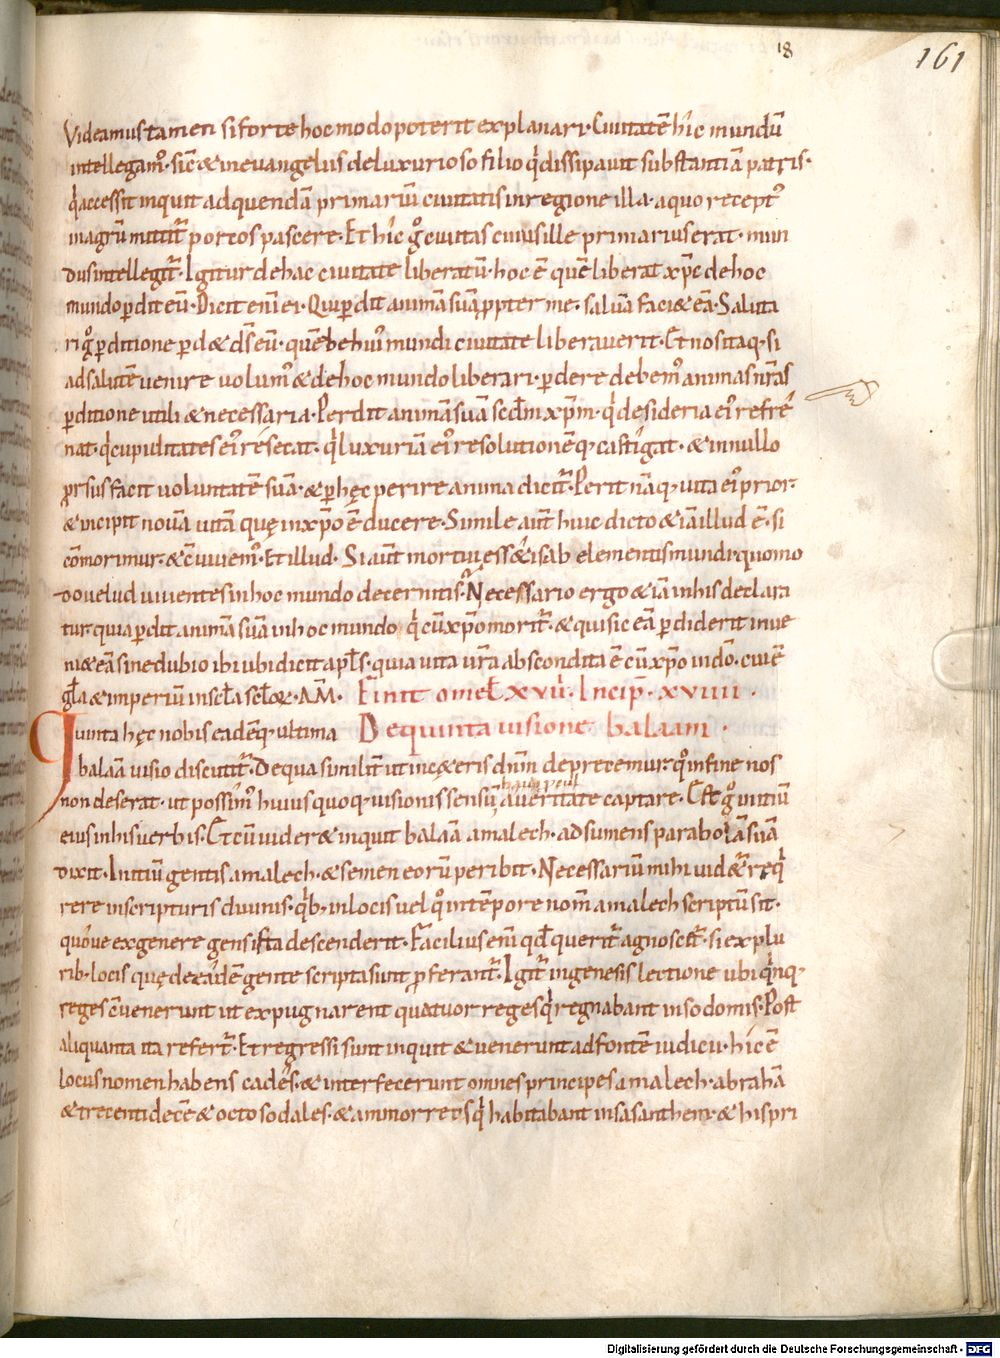 18
161
Videamus tamen si forte hoc modo poterit explanari· Ciuitatē hic mundū
intellegam᾽· sic̄ & in euangeliis de luxurioso filio q̇ dissipauit substantiā patris·
q̇ accessit inquit ad quendā primariū ciuitatis in regione illa· a quo recept᾽
in agrū mittit᷑ porcos pascere· Et hic g̊ ciuitas cuius ille primarius erat· mun
dus intellegit᷑· Igitur de hac ciuitate liberatū· hoc ē quē liberat xp̄c de hoc
mundo ꝑdit eū· Dicit enī ei· Qui ꝑdit animā suā ꝓpter me· saluā faci& eā· Saluta
ri g̊ ꝑditione ꝑd& ds̄ eū· quē de hui᾽ mundi ciuitate liberauerit· Et nos itaq· si
ad salutē uenire uolum᾽ & de hoc mundo liberari· ꝑdere debem᾽ animas nr̄as
ꝑditione utili & necessaria· Perdit animā suā scd̄m xp̄m· q̇ desideria ei᾽ refre
nat· q̇ cupiditates ei᾽ resecat· q̇ luxuriā ei᾽ resolutionēq· castigat· & in nullo
prorsus facit uoluntatē suā· & ꝑ hęc perire anima dicit᷑· Perit nāq· uita ei᾽ prior·
& incipit nouā uitā quę in xp̄o ē ducere· Simile aut̄ huic dicto & iā illud ē· si
cōmorimur· & cōuiuem᾽· Et illud· Si aut̄ mortui ess&is ab elementis mundi· quomo
do uelud uiuentes in hoc mundo decernitis· Necessario ergo & iā in his declara
tur· quia ꝑdit animā suā in hoc mundo q̇ cū xp̄o morit᷑· & qui sic eā ꝑdiderit inue
ni& eā sine dubio ibi ubi dicit apl̄s· quia uita ur̄a abscondita ē cū xp̄o in dō· cui ē
gl̄a & imperiū in scl̄a scl̄oꝝ· AM̄· Finit omel̄ xvii· Incip̄· xviiii·
Iuuita hęc nobis eadēq· ultima De quinta uisione balaam·
balaā uisio discutit᷑· De qua similit̄ ut in c&eris dn̄m deprecemur· q̊ in fine nos
non deserat· ut possim᾽ huius quoq· uisionis sensū a ueritate captare· Est g̊ initiū
eius in his uerbis· Et cū uider& inquit balaā amalech· adsumens parabolā suā
dixit· Initiū gentis amalech· & semen eorū peribit· Necessariū mihi uid&᷑ req̇
rere in scripturis diuinis· q̇b; in locis uel q̊ in tēpore nom̄ amalech scriptū sit·
quoue ex genere gens ista descenderit· Facilius enī qd̄ querit᷑ agnoscet᷑· si ex plu
rib· locis quę de eadē gente scripta sunt ꝓferant᷑· Igit᷑ in genesis lectione ubi q̇nq·
reges cōuenerunt ut expugnarent quatuor reges q̇ regnabant in sodomis· Post
aliquanta ita refert᷑· Et regressi sunt inquit & uenerunt ad fontē iudicii· hic ē
locus nomen habens cades· & interfecerunt omnes principes amalech· abrahā
& trecenti decē & octo sodales· & ammorreos q̇ habitabant in sasantheni· & hispri
Digitalisierung gefördert durch die Deutsche Forschungsgemeinschaft - DFG